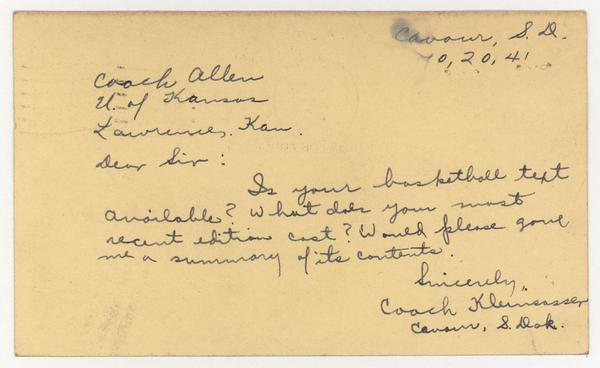 Cavour, S. D.
10, 20, 41
Coach Allen
U. of Kansas
Lawrence, Kan.
Dear Sir:
Is your basketball text
available? What does your most
recent edition cost? Would please give
me a summary of its contents.
Sincerely,
Coach Kleinsasser
Cavour, S. Dak.